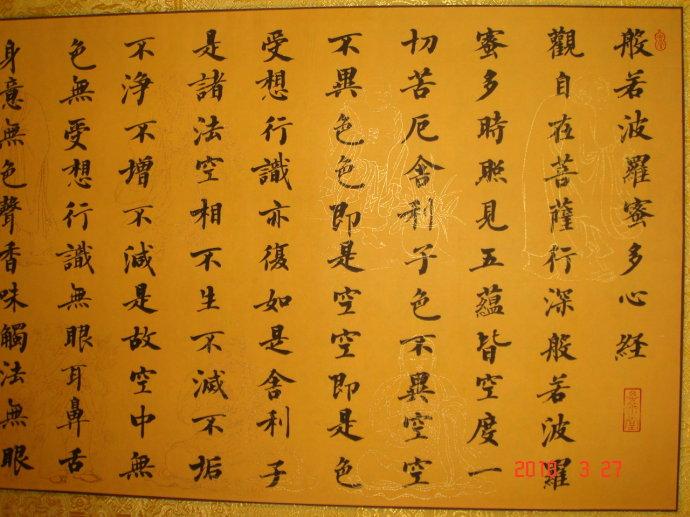 般若波羅蜜多心経
觀自在菩薩行深般若波羅
蜜多時照見五蘊皆空度一
切苦厄舍利子色不異空空
不異色色即是空空即是色
受想行識亦復如是舍利子
是諸法空相不生不滅不垢
不淨不增不減是故空中無
色無受想行識無眼耳鼻舌
身意無色聲香味觸法無眼
2010. 3 27